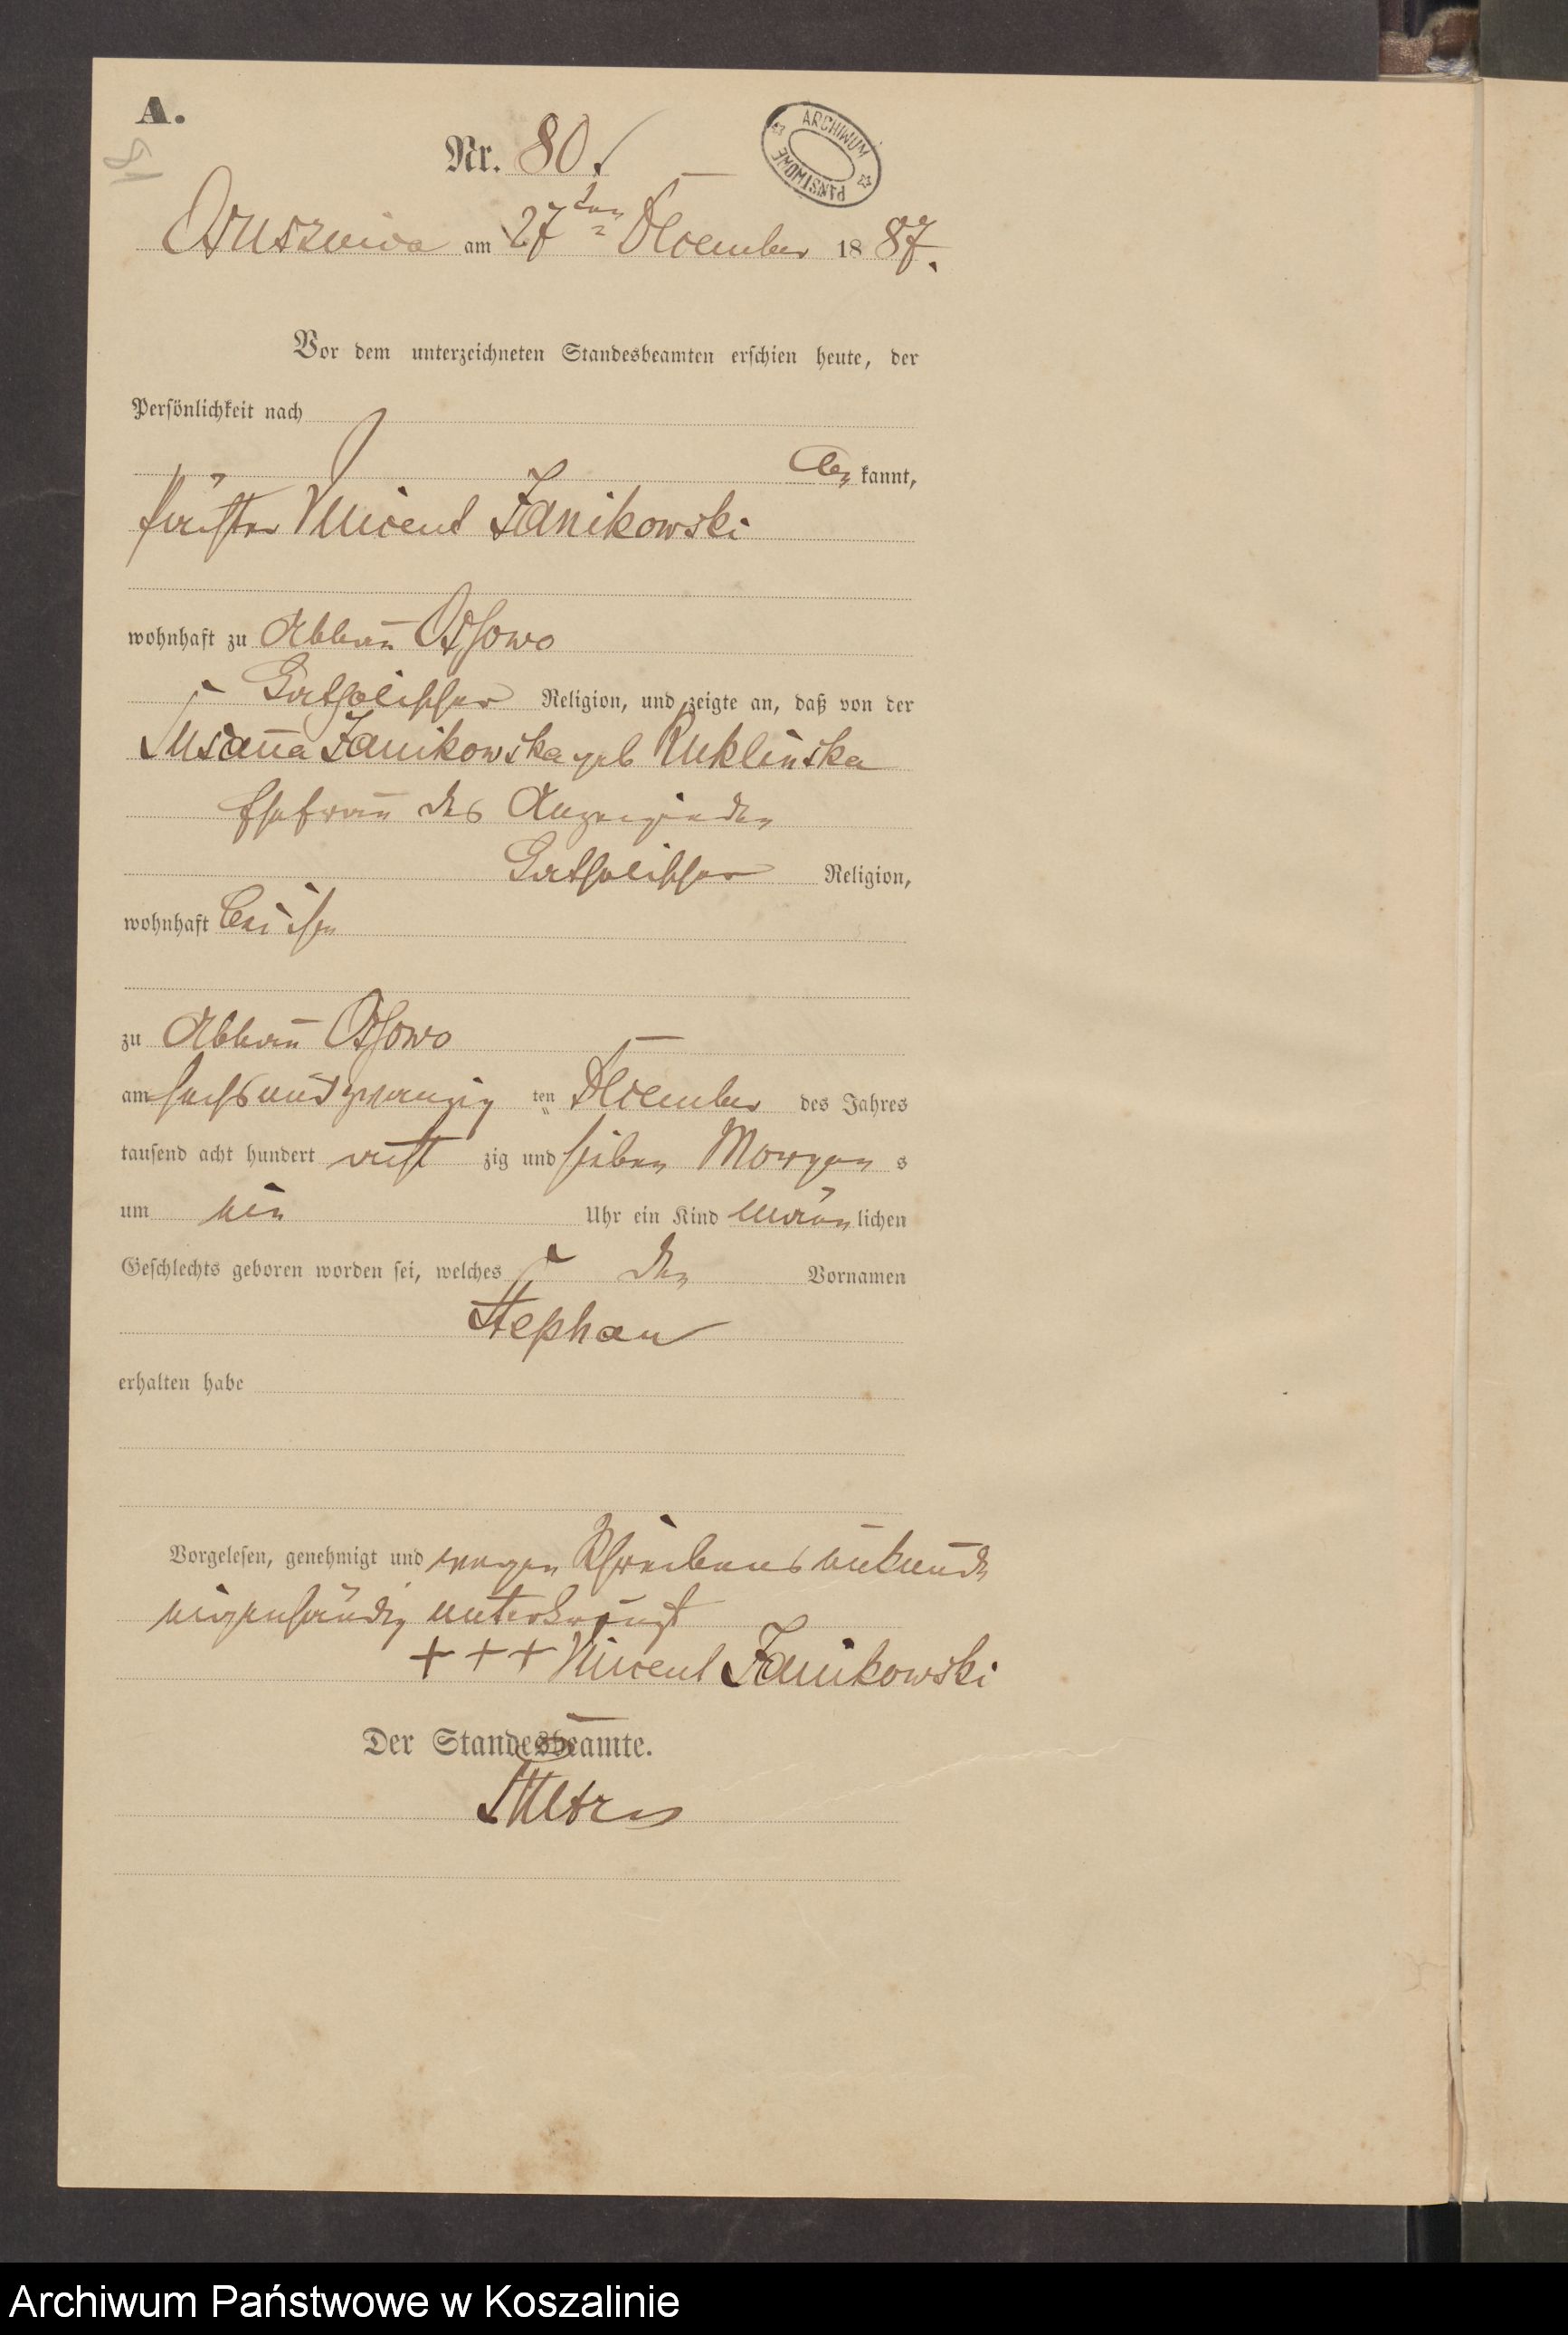 A.
Nr. 80.
ARCHIWUM PAŃSTWOWE
am 27ten December 1887.
Vor dem unterzeichneten Standesbeamten erschien heute, der
Persönlichkeit nach
be kannt,
Vincent Janikowski
wohnhaft zu Abbau Ossowo
Katholischer Religion, und zeigte an, daß von der
Susanna Janikowska geb Kuklinska
Ehefrau des Anzeigenden
Katholischer Religion,
wohnhaft bei ihm
zu Abbau Ossowo
am sechsundzwanzig ten December des Jahres
tausend acht hundert acht zig und sieben Morgens
um ein Uhr ein Kind männlichen
Geschlechts geboren worden sei, welches den Vornamen
Stephan
erhalten habe
Vorgelesen, genehmigt und wegen Schreibensunkunde
eigenhändig unterkreuzt
+++ Vincent Janikowski
Der Standesbeamte.
Archiwum Państwowe w Koszalinie